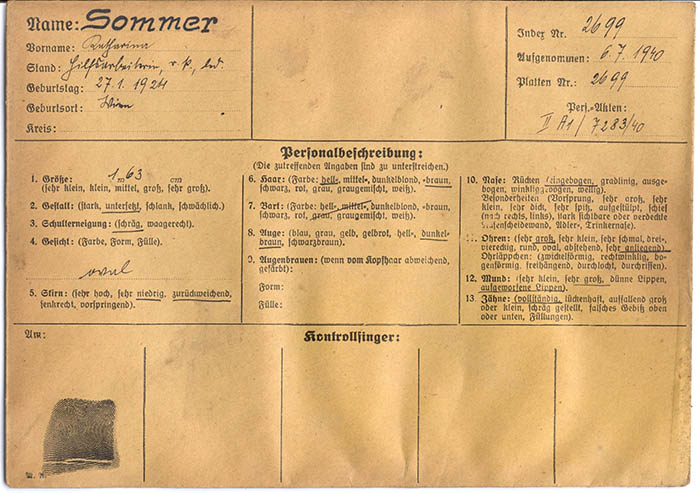 Name: Sommer
Vorname: Katharina
Stand: Hilfsarbeiterin, r.k., led.
Geburtstag: 27.1.1924
Geburtsort: Wien
Kreis:
Index Nr. 2699
Aufgenommen: 6.7.1940
Platten Nr.: 2699
Pers.-Akten:
II A1/7283/40
Personalbeschreibung:
(Die zutreffenden Angaben sind zu unterstreichen.)
1. Größe: 1 m 63 cm
(sehr klein, klein, mittel, groß, sehr groß).
2. Gestalt: (stark, untersetzt, schlank, schwächlich.)
3. Schulterneigung: (schräg, waagerecht).
4. Gesicht: (Farbe, Form, Fülle).
oval
5. Stirn: (sehr hoch, sehr niedrig, zurückweichend,
senkrecht, vorspringend).
6. Haar: (Farbe: hell-, mittel-, dunkelblond, -braun,
schwarz, rot, grau, graugemischt, weiß).
7. Bart: (Farbe: hell-, mittel-, dunkelblond, -braun,
schwarz, rot, grau, graugemischt, weiß).
8. Auge: (blau, grau, gelb, gelbrot, hell-, dunkel-
braun, schwarzbraun).
9. Augenbrauen: (wenn vom Kopfhaar abweichend,
gefärbt):
Form:
Fülle:
10. Nase: Rücken (eingebogen, gradlinig, ausge-
bogen, winkliggebogen, wellig).
Besonderheiten (Vorsprung, sehr groß, sehr
klein, sehr dick, sehr spitz, aufgestülpt, schief
(nach rechts, links), stark sichtbare oder verdeckte
Nasenscheidewand, Adler-, Trinkernase).
11. Ohren: (sehr groß, sehr klein, sehr schmal, drei-,
viereckig, rund, oval, abstehend, sehr anliegend)
Ohrläppchen: (zwickelförmig, rechtwinklig, bo-
genförmig, freihängend, durchlocht, durchrissen).
12. Mund: (sehr klein, sehr groß, dünne Lippen,
aufgeworfene Lippen).
13. Zähne: (vollständig, lückenhaft, auffallend groß
oder klein, schräg gestellt, falsches Gebiß oben
oder unten, Füllungen).
Am:
Kontrollfinger: